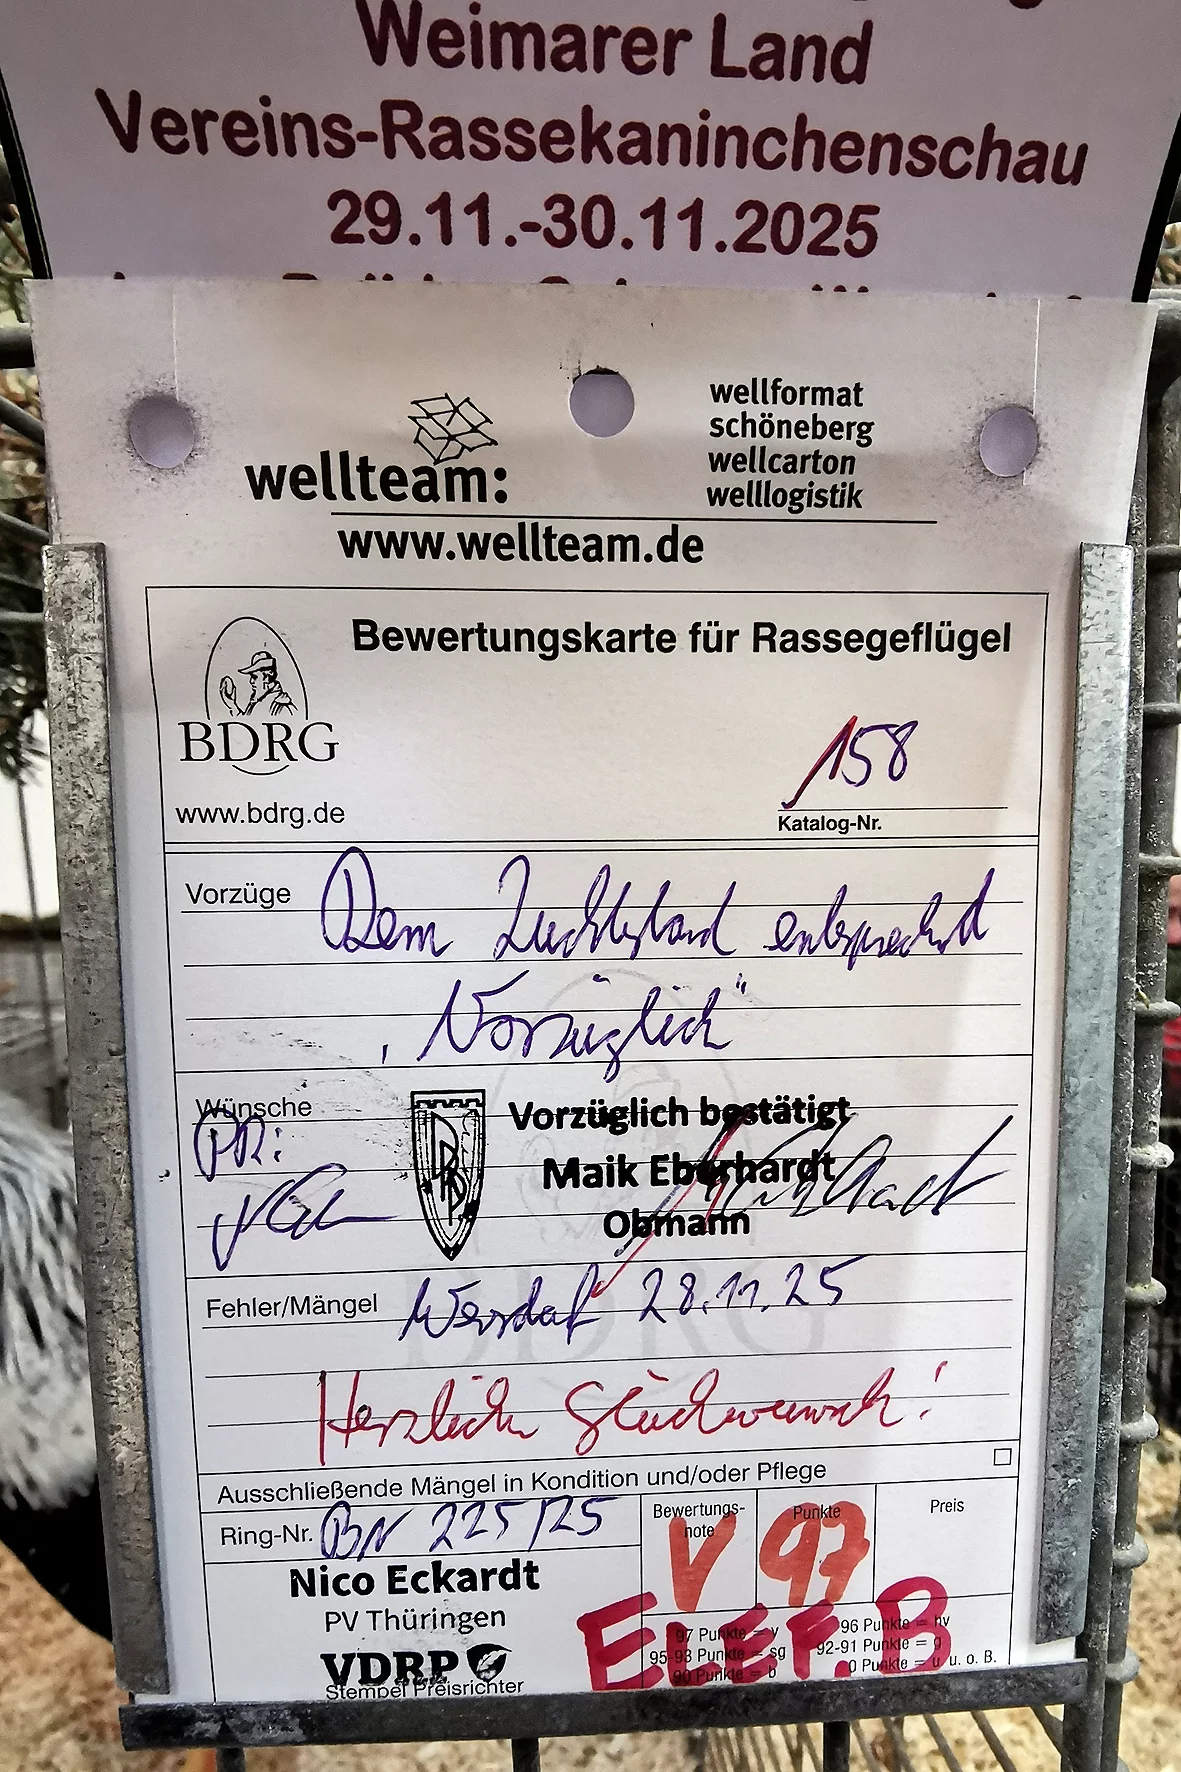 Weimarer Land
Vereins-Rassekaninchenschau
29.11.-30.11.2025
wellteam:
wellformat
schöneberg
wellcarton
welllogistik
www.wellteam.de
BDRG
www.bdrg.de
Bewertungskarte für Rassegeflügel
158
Katalog-Nr.
Vorzüge Dem Zuchtstand entsprechend
„Vorzüglich“
Wünsche
PR:
Vorzüglich bestätigt
Maik Eberhardt
Obmann
Fehler/Mängel 28.11.25
Herzlichen Glückwunsch!
Ausschließende Mängel in Kondition und/oder Pflege
Ring-Nr. BN 225/25
Bewertungs-
note
V
Punkte
97
Preis
Nico Eckardt
PV Thüringen
VDRP
Stempel Preisrichter
ELEF. B
97 Punkte = v
96 Punkte = hv
95-93 Punkte = sg
92-91 Punkte = g
90 Punkte = b
0 Punkte = u u. o. B.